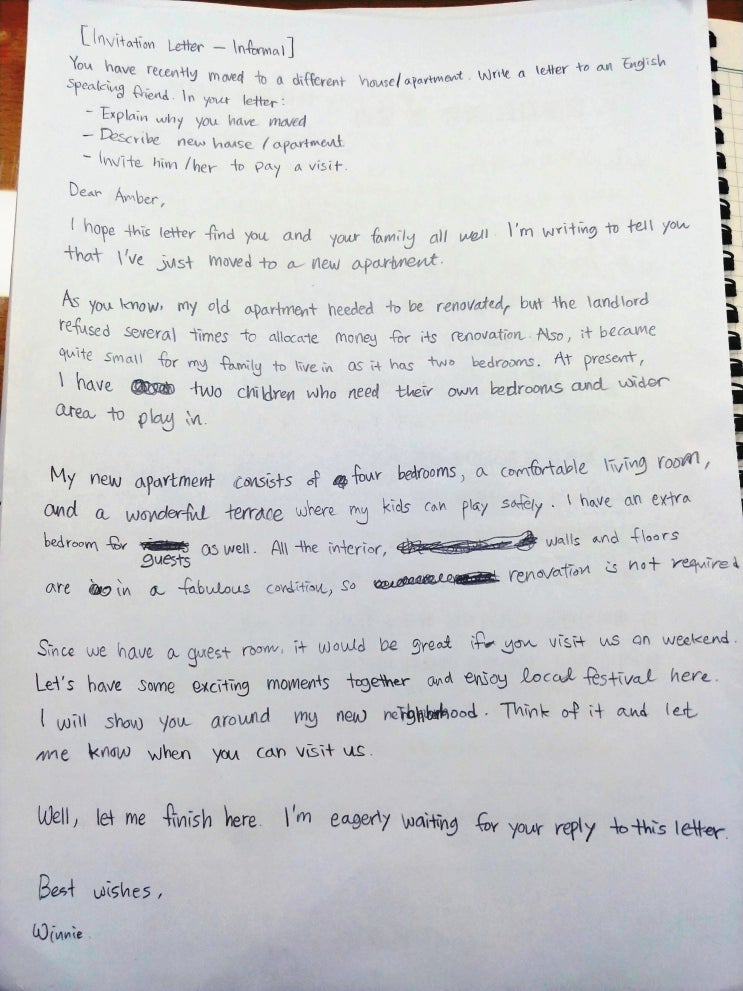 [Invitation Letter – Informal]
You have recently moved to a different house/apartment. Write a letter to an English
speaking friend. In your letter:
- Explain why you have moved
- Describe new house / apartment
- Invite him/her to pay a visit.
Dear Amber,
I hope this letter find you and your family all well. I'm writing to tell you
that I've just moved to a new apartment.
As you know, my old apartment needed to be renovated, but the landlord
refused several times to allocate money for its renovation. Also, it became
quite small for my family to live in as it has two bedrooms. At present,
I have two children who need their own bedrooms and wider
area to play in.
My new apartment consists of four bedrooms, a comfortable living room,
and a wonderful terrace where my kids can play safely. I have an extra
bedroom for guests as well. All the interior, walls and floors
are in a fabulous condition, so renovation is not required
Since we have a guest room, it would be great if you visit us on weekend.
Let's have some exciting moments together and enjoy local festival here.
I will show you around my new neighborhood. Think of it and let
me know when you can visit us.
Well, let me finish here. I'm eagerly waiting for your reply to this letter.
Best wishes,
Winnie.